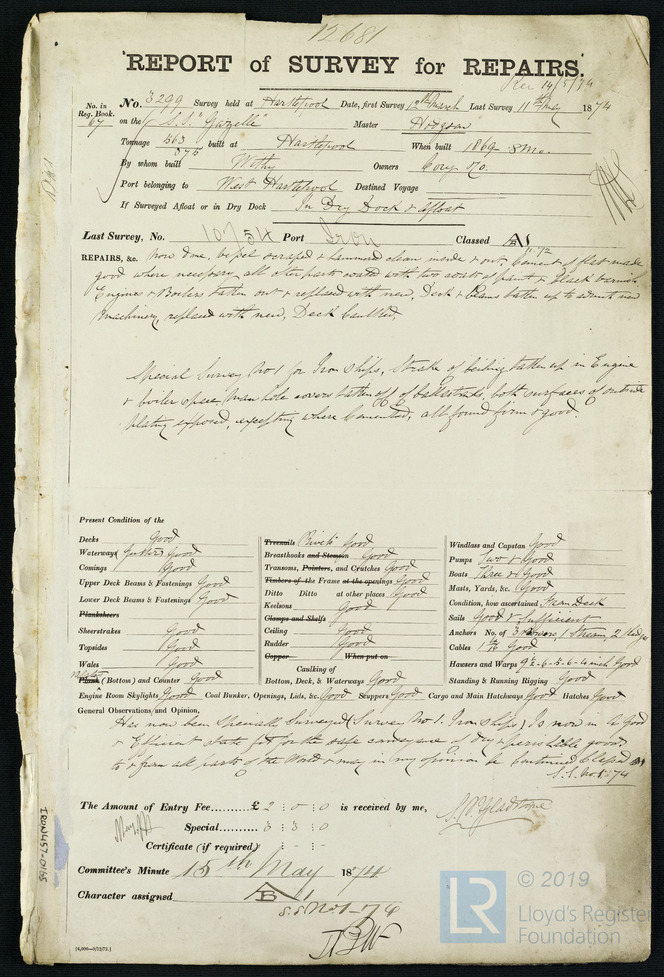 12681
REPORT of SURVEY for REPAIRS.
Rec 14/5/74
No. in Reg. Book. 67
No. 3299 Survey held at Hartlepool Date, first Survey 12th March Last Survey 11th May 1874
on the S.S. "Gazelle" Master Hodgson
Tonnage 563 / 375 built at Hartlepool When built 1869 8 Mo.
By whom built Withy Owners Cory & Co.
Port belonging to West Hartlepool Destined Voyage
If Surveyed Afloat or in Dry Dock In Dry Dock & Afloat
Last Survey, No. 10754 Port Iron Classed A 1 11.72
REPAIRS, &c. Now done, vessel scraped & hammered clean inside & out, Cement of flat made
good where necessary, all other parts coated with two coats of paint & black varnish
Engines & Boilers taken out & replaced with new, Deck & Beams taken up to admit new
Machinery, replaced with new, Deck Caulked.
Special Survey No 1 for Iron Ships, Strake of ceiling taken up in Engine
& boiler space, Man hole covers taken off of ballast tanks, both surfaces of outside
plating exposed, excepting where Cemented, all found firm & good.
Present Condition of the
Decks Good
Waterways Gutters Good
Comings Good
Upper Deck Beams & Fastenings Good
Lower Deck Beams & Fastenings Good
Planksheers
Sheerstrakes Good
Topsides Good
Wales Good
Plank (Bottom) and Counter Good
Treenails Rivets Good
Breasthooks and Stemson Good
Transoms, Pointers, and Crutches Good
Timbers of the Frame at the openings Good
Ditto Ditto at other places Good
Keelsons Good
Clamps and Shelfs
Ceiling Good
Rudder Good
Copper When put on
Caulking of
Bottom, Deck, & Waterways Good
Windlass and Capstan Good
Pumps Two & Good
Boats Three & Good
Masts, Yards, &c. Good
Condition, how ascertained From Deck
Sails Good & Sufficient
Anchors No. of 3 Bowers 1 Stream 2 Kedges
Cables Good
Hawsers and Warps Good
Standing & Running Rigging Good
Engine Room Skylights Good Coal Bunker, Openings, Lids, &c. Good Scuppers Good Cargo and Main Hatchways Good Hatches Good
General Observations and Opinion,
Has now been Specially Surveyed (Survey No. 1. Iron Ships) Is now in a good
& Efficient state fit for the safe conveyance of dry & perishable goods
to & from all parts of the World & may in my opinion be Continued Classed
S.S. No. 1-74
The Amount of Entry Fee.......... £ 2 : 0 : 0 is received by me,
Special.......... 3 : 3 : 0
Certificate (if required) : - : -
Committee's Minute 15th May 1874
Character assigned A 1
S.S No 1-74
(4,000-9/12/72.)
IRON457-0165
LR © 2019
Lloyd's Register
Foundation